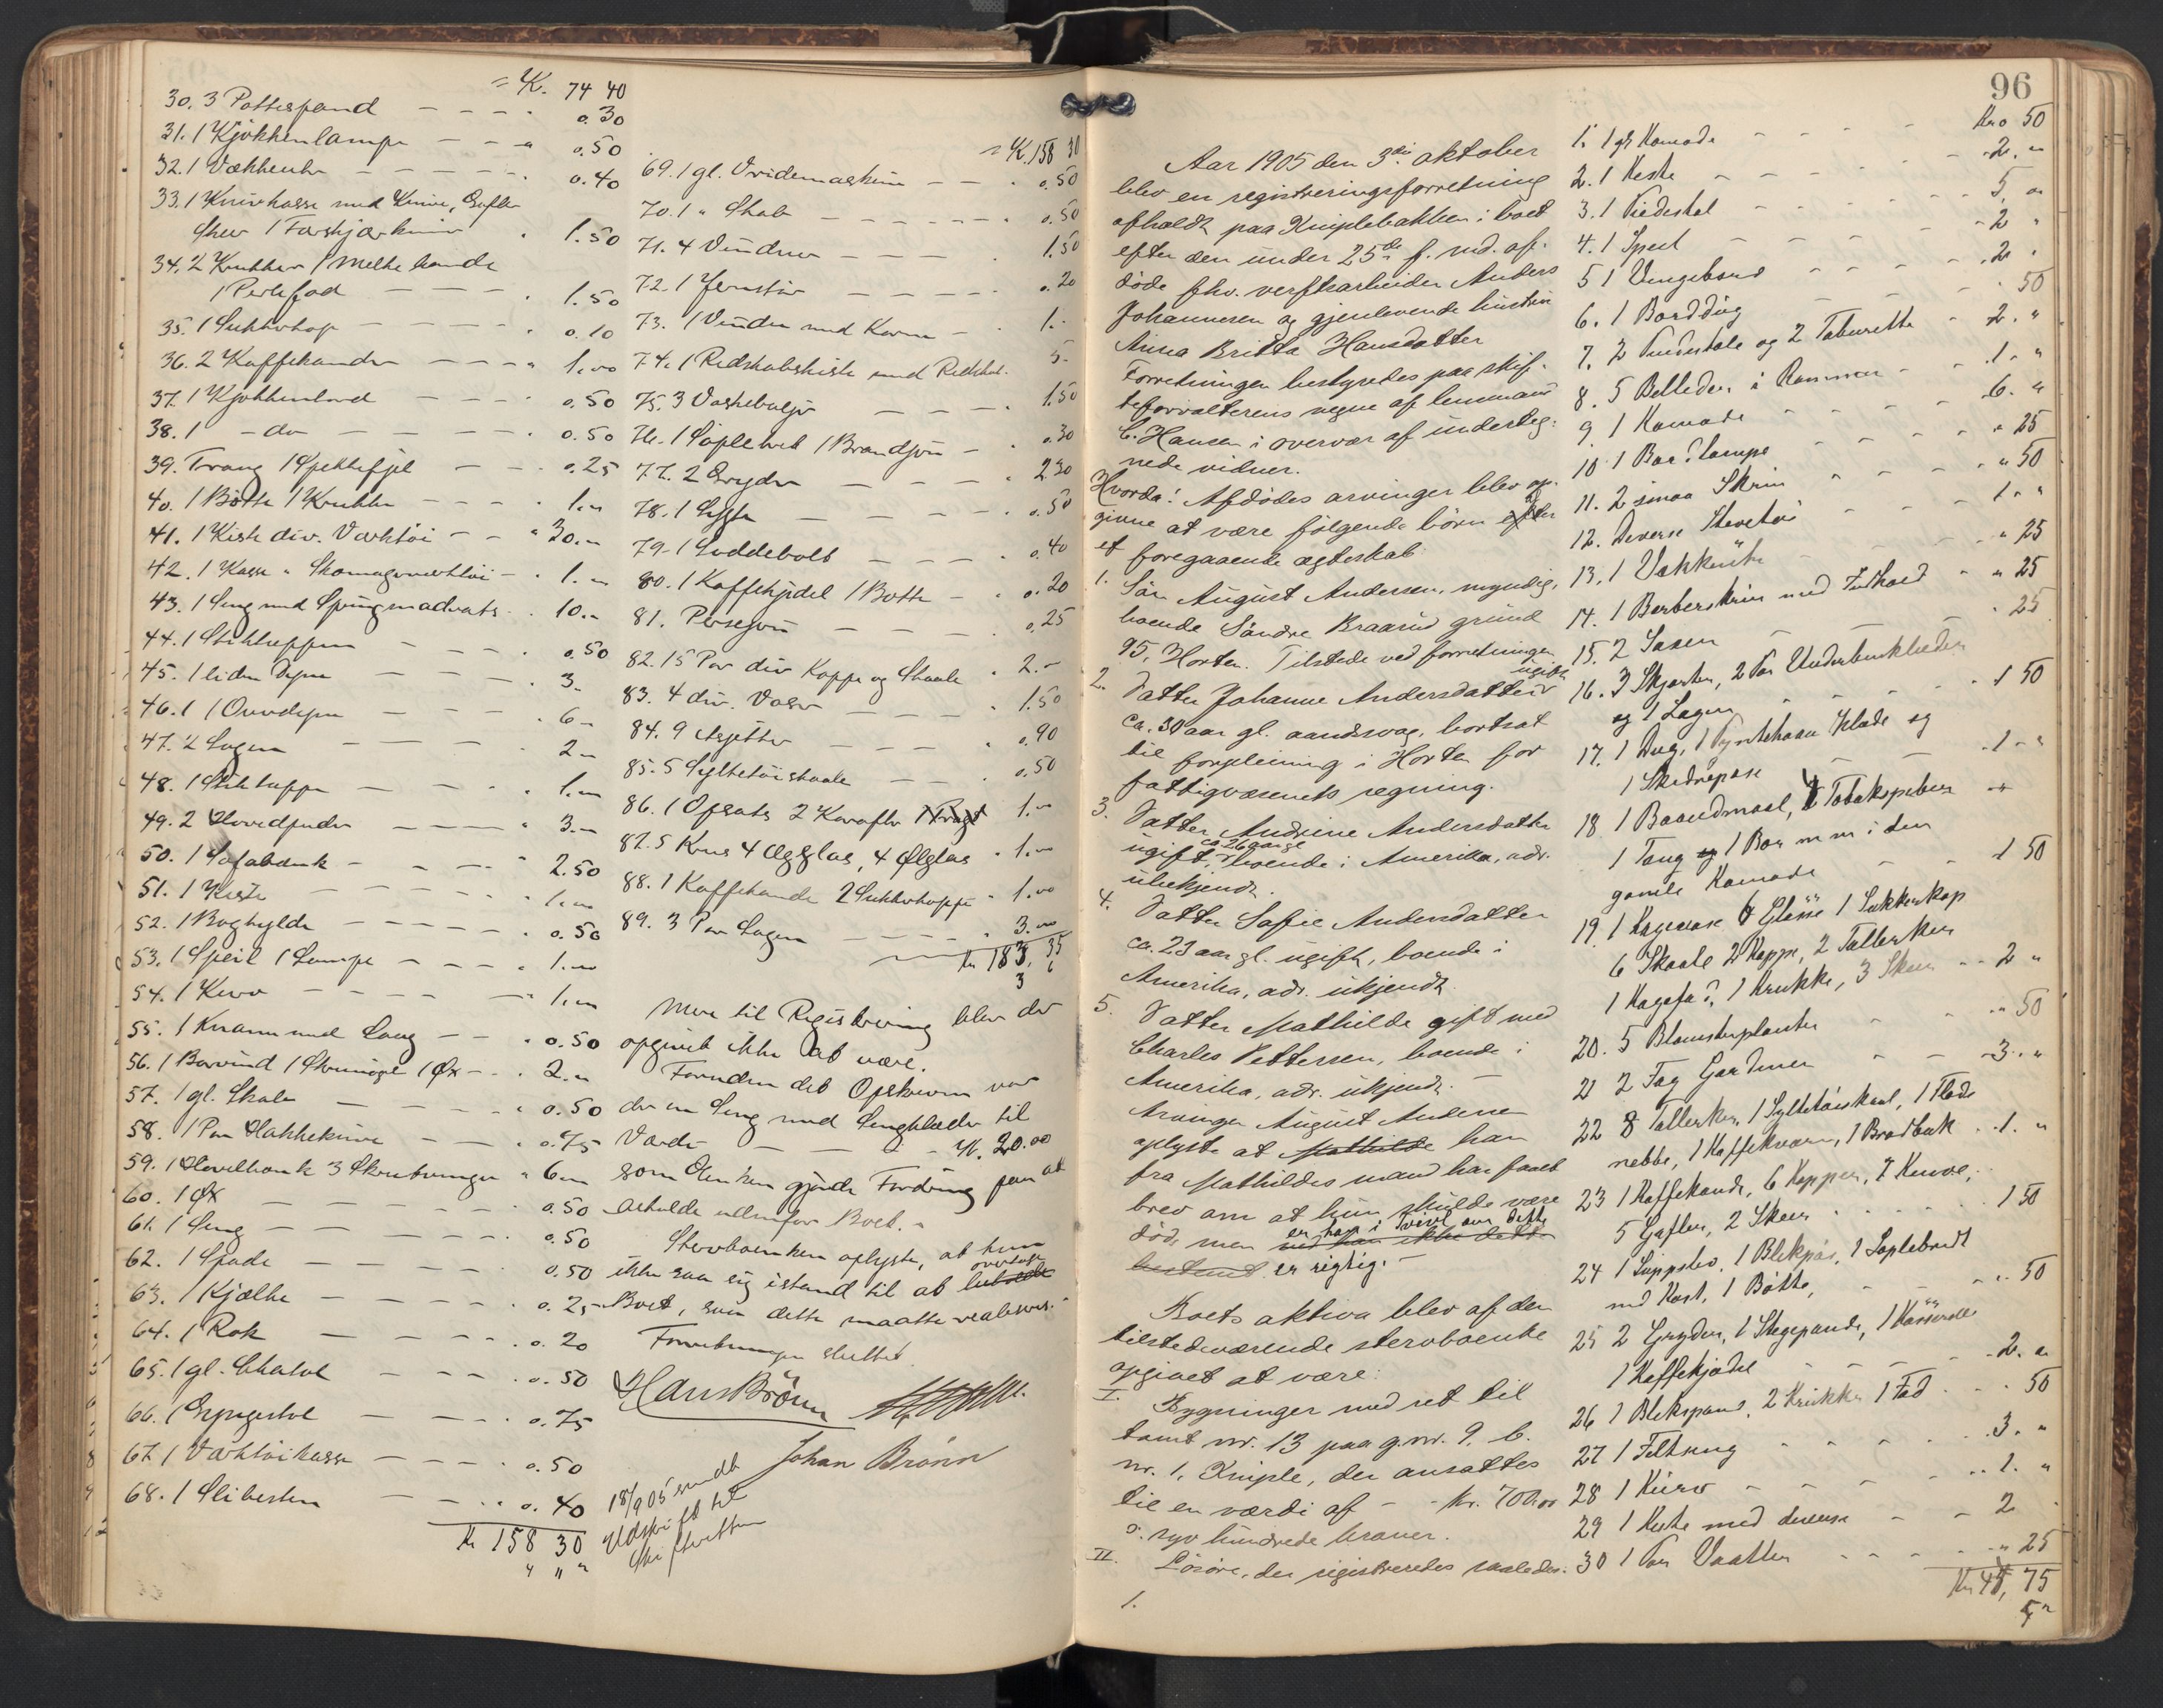 = K. 74 40
30. 3 Pottespand - - - 0.30
31. 1 Kjøkkenlampe - - - 0.50
32. 1 Vækkeuhr - - - 0.40
33. 1 Knivkasse med Knive, Gafler
Skeer 1 Farskjærkniv 1.50
34. 2 Krukker 1 Melkekande
1 Perlefad - - - 1.50
35. 1 Sukkerkop - - - 0.10
36. 2 Kaffekander - - - 1.00
37. 1 Kjøkkenbord - - - 0.50
38. 1 - do - - - 0.50
39. Traug 1 Spekkefjel - - 0.25
40. 1 Bøtte 1 Krukke - - - 1."
41. 1 Kiste div. Værktøi - - " 30."
42. 1 Kasse " Skomagerverktøi - 1."
43. 1 Seng med Springmadrats 10."
44. 1 Stikteppe - - - 0.50
45. 1 liden Dyne - - - 3.
46. 1 Overdyne - - - 6"
47. 2 Lagen - - - 2"
48. 1 Stikteppe - - - 1."
49. 2 Hovedpuder - - - 3."
50. 1 Sofabænk - - - 2.50
51. 1 Kiste - - - 1.00
52. 1 Boghylde - - - 0.50
53. 1 Speil 1 Lampe - - - 1.00
54. 1 Kurv - - - 1.00
55. 1 Kraam med Laag - - 0.50
56. 1 Borvind 1 Skruenøgle 1 Øx - - 2."
57. 1 gl. Skale - - - 0.50
58. 1 Par Hakkeknive - - - 0.75
59. 1 Høvelbænk 3 Skrutvinger " 6"
60. 1 Øx - - - 0.50
61. 1 Seng - - - 0.50
62. 1 Spade - - - 0.50
63. 1 Kjælke - - - 0.25
64. 1 Rok - - - 0.20
65. 1 gl. Chatol - - - 0.50
66. 1 Gyngestol - - - 0.75
67. 1 Værktøikasse - - - 0.50
68. 1 Slibesten - - - 0.40
Kr 158 30
= K. 158 30
69. 1 gl. Vridemaskine - - 0.50
70. 1 " Skab - - - 0.50
71. 4 Vinduer - - - 1.50
72. 1 Jernstør - - - 0.20
73. 1 Vindu med Karm - 1.-
74. 1 Redskabskiste med Redskab. 5.
75. 3 Vaskebaljer - - 1.50
76. 1 Søplebret 1 Brandjern - 0.30
77. 2 Gryder - - - 2.30
78. 1 Løgte - - - 0.50
79. 1 Loddebolt - - - 0.40
80. 1 Kaffekjedel 1 Bøtte - 0.20
81. Persejern - - - 0.25
82. 15 Par div Koppe og Skaale 2.-
83. 4 div. Vaser - - - 1.50
84. 9 Asjetter - - - 0.90
85. 5 Syltetøiskaale - - 0.50
86. 1 Opsats 2 Karafler 1 Bragt 1."
87. 5 Krus 4 Ægglas, 4 Ølglas 1."
88. 1 Kaffekande 2 Sukkerkoppe " 1.00
89. 3 Par Lagen - - - 3.00
Kr 183, 35
Mere til Registrering blev der
opgivet ikke at være.
Foruden det Opskrevne var
der en Seng med Sengklæder til
Værdi - - - K. 20.00
som Enken gjorde Fordring paa at
beholde udenfor Boet. -
Stervboenken oplyste, at hun
ikke saa sig istand til at beholde overtage
Boet, som dette maatte realiseres.-
Forretningen sluttet.
Hans Brönn
Johan Brönn
18/9 05 sendt
Udskrift til
Skifteretten
96
Aar 1905 den 3die oktober
blev en registreringsforretning
afholdt paa Kniplebakken i boet
efter den under 25de f. md. af-
døde fhv. verftsarbeider Anders
Johannesen og gjenlevende hustru
Anna Britta Hansdatter
Forretningen bestyredes paa skif-
teforvalterens vegne af lensmand
C. Hansen i overvær af underteg-
nede vidner.
Hvorda: Afdødes arvinger blev op-
givne at være følgende børn efter af
et foregaaende ægteskab
1. Søn August Andersen, myndig,
boende Søndre Braarud grund
95, Horten. Tilstede ved forretningen
2. Datter Johanne Andersdatter ugift
ca. 30 aar gl. aandssvag, bortsat
til forpleining i Horten for
fattigvæsenets regning.
3. Datter Andrine Andersdatter
ugift, ca 26 aar gl boende i Amerika, adr.
ubekjendt.
4. Datter Sofie Andersdatter
ca. 23 aar gl. ugift, boende i
Amerika, adr. ukjendt
5. Datter Mathilde gift med
Charles Pettersen, boende i
Amerika, adr. ukjendt. -
Arvingen August Andersen
oplyste at Mathilde han
fra Mathildes mand har faaet
brev om at hun skulde være
død, men ved han ikke dette er han i Tvivl om dette
bestemt er rigtig. -
Boets aktiva blev af den
tilstedeværende stervboenke
opgivet at være:
I. Bygninger med ret til
tomt nr. 13 paa g. nr. 9, b.
nr. 1, Kniple, der ansattes
til en værdi af - - kr. 700.00
o: syv hundrede kroner.
II. Løsøre, der registreredes saaledes:
1.
1. 1 gl Komode - - - Kr 0 50
2. 1 Kiste - - - 2. "
3. 1 Piedestal - - - 5, "
4. 1 Speil - - - 2 "
5 1 Vengebord - - - 2 "
6. 1 Borddug - - - 50
7. 2 Piedestale og 2 Taburette - 2. "
8. 5 Belleder i Rammer - - 1 - "
9. 1 Komode - - - 6. "
10 1 Bordlampe - - - " 25
11. 2 smaa Skrin - - - " 50
12. Deverse Stentøi - - - 1 - "
13. 1 Vækkeuhr - - - " 25
14. 1 Berberskrin med Indhold - " 25
15. 2 Saxer - - - 25
16. 3 Skjorter, 2 Par Underbenklæder
og 1 Lagen - - - 1 50
17. 1 Dug, 1 Pyntehaandklæde og
1 Skedrepose - - - 1 - "
18 1 Baandmaal, Tobakspiber
1 Tang og 1 Bor m m i den
gamle Komode - - - 1 50
19. 1 Kagevase 6 Glasse 1 Sukkerkop
6 Skaale 2 Koppe, 2 Tallerken
1 Kagefad, 1 Krukke, 3 Skeer - - 2 "
20. 5 Blomsterplanter - - - " 50
21 2 Fag Gardiner - - - 3. "
22 8 Tallerken, 1 Syltetøiskaal, 1 Fløde
nebbe, 1 Kaffekværn, 1 Brødbæk . . 1. "
23 1 Kaffekande, 6 Kopper, 7 Knive,
5 Gafler, 2 Skeer - - - 1 50
24 1 Suppeslev, 1 Blekpøs, 1 Søplebrett
med Kost, 1 Bøtte, - - - 50
25 2 Gryder, 1 Stegepande, 1 Kasserolle
1 Kaffekjedel - - - 2. "
26 1 Blekspand, 2 Krukker 1 Fad - - 50
27 1 Feltseng - - - 3. "
28 1 Kurv - - - 1. "
29 1 Kiste med deverse - - 2
30 1 Par Vaatter - - - " 25
Kr 45, 75